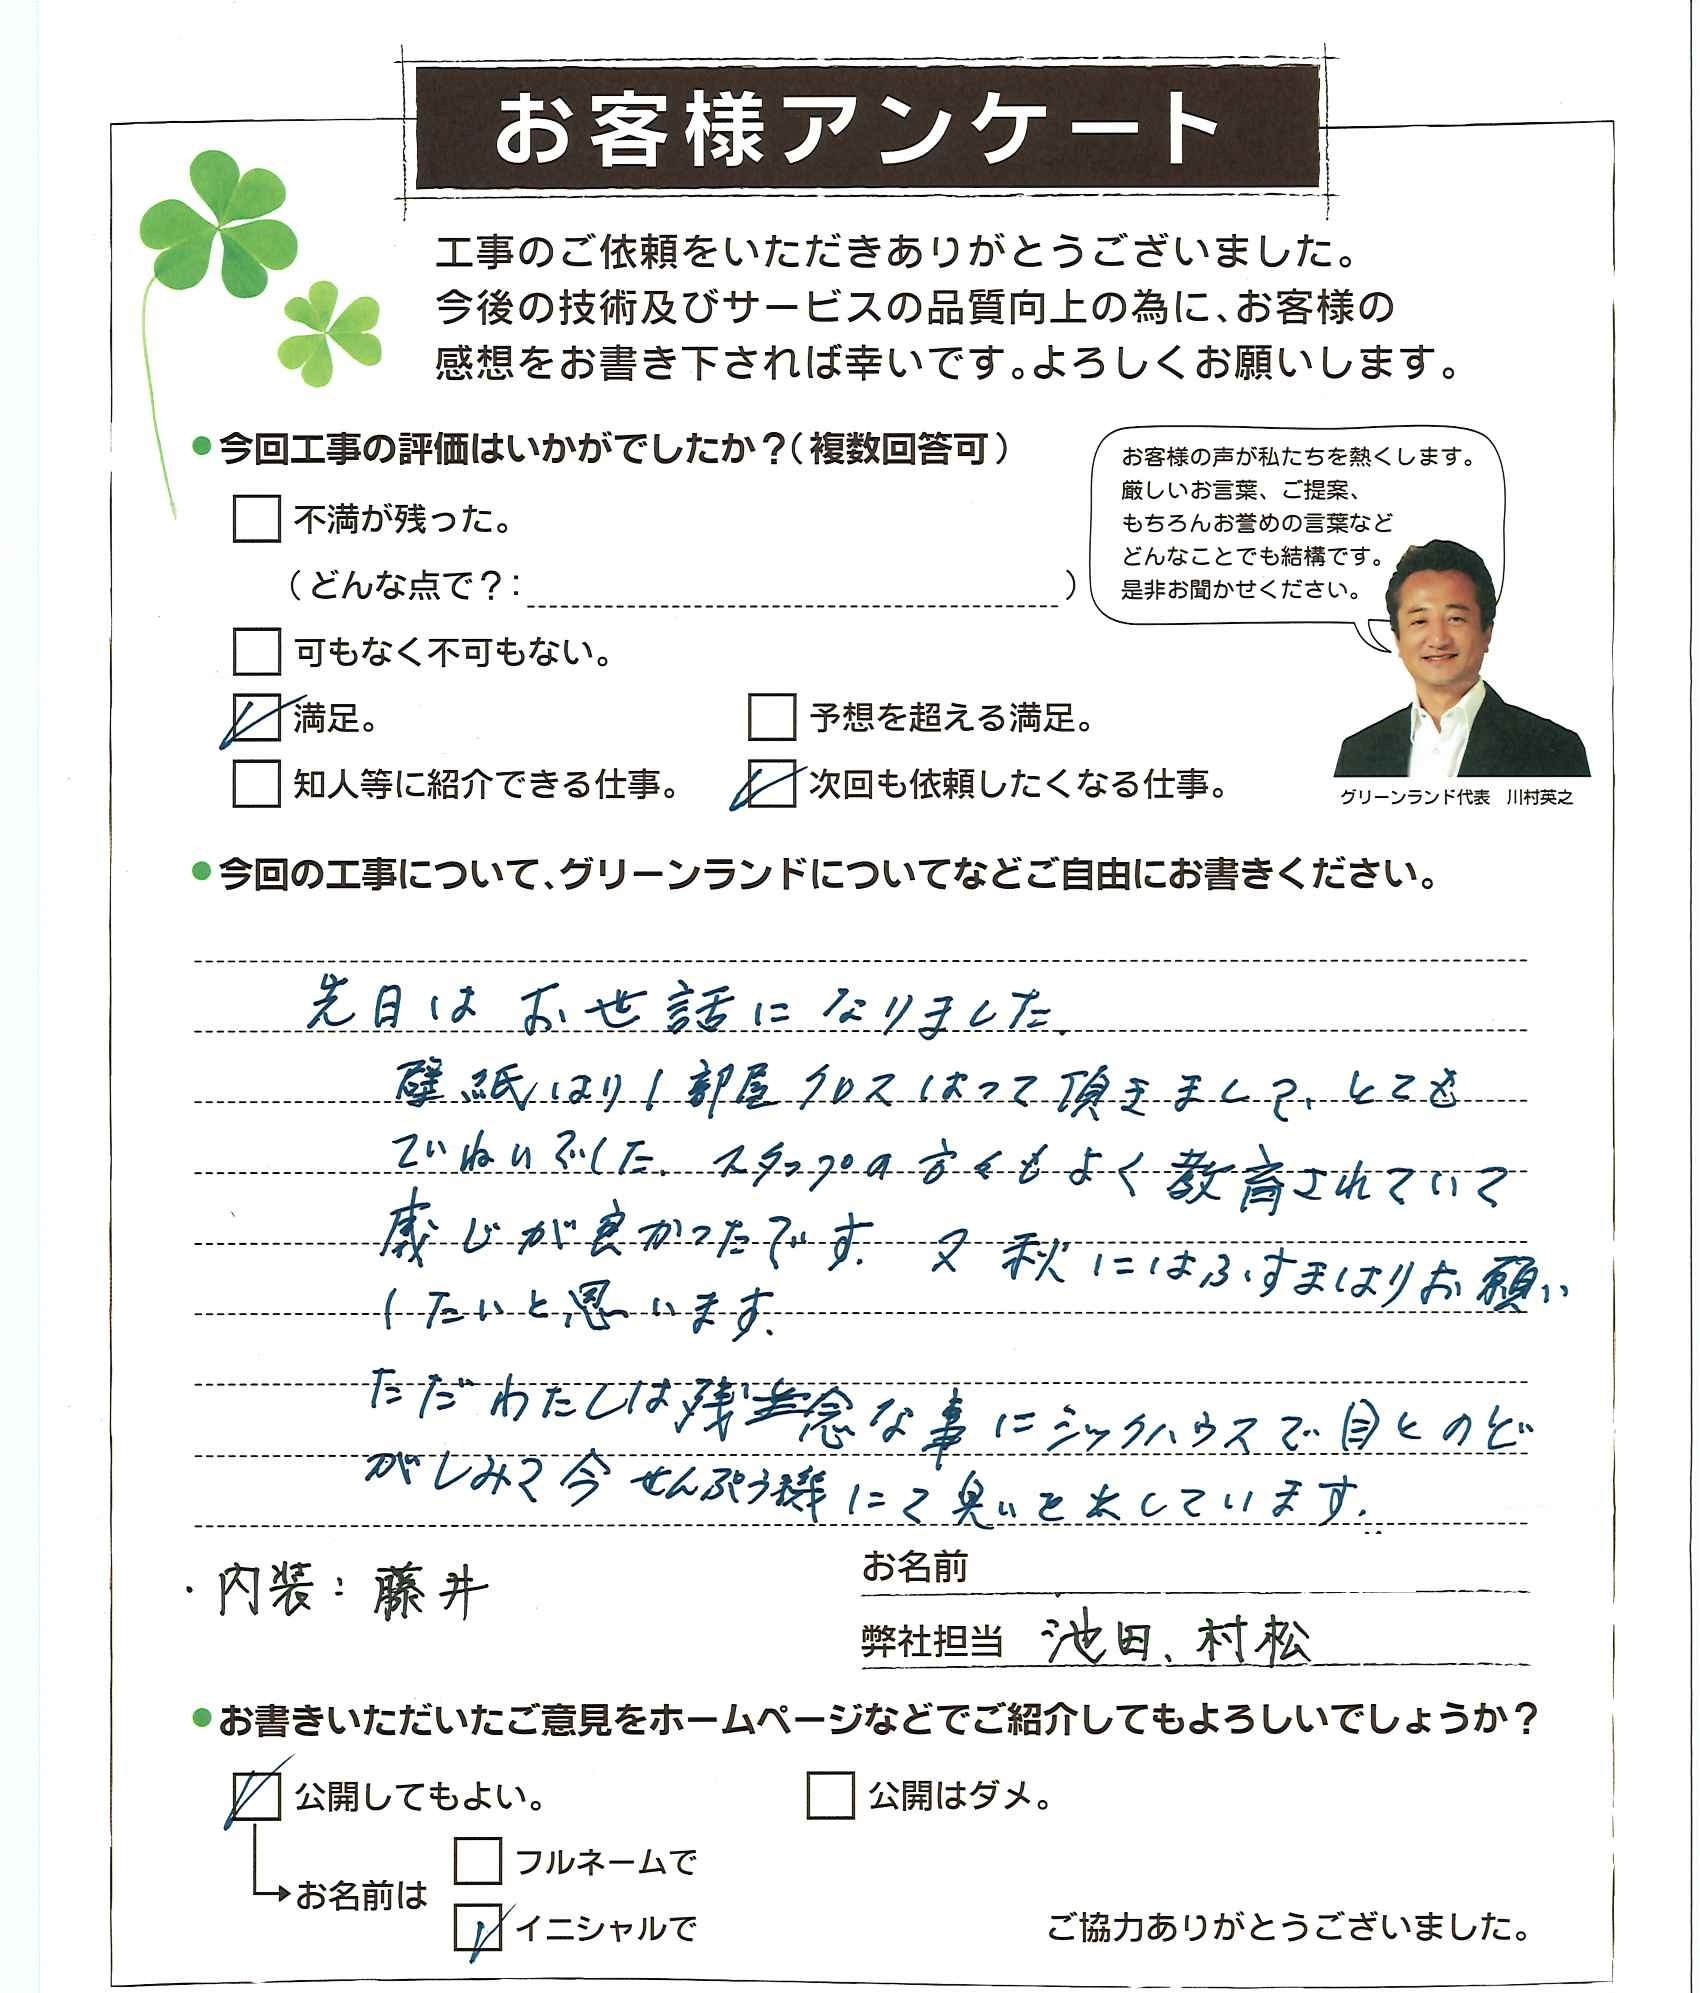 お客様アンケート
工事のご依頼をいただきありがとうございました。
今後の技術及びサービスの品質向上の為に、お客様の
感想をお書き下されば幸いです。よろしくお願いします。
●今回工事の評価はいかがでしたか?(複数回答可)
不満が残った。
(どんな点で?: )
可もなく不可もない。
満足。
予想を超える満足。
知人等に紹介できる仕事。
次回も依頼したくなる仕事。
お客様の声が私たちを熱くします。
厳しいお言葉、ご提案、
もちろんお誉めの言葉など
どんなことでも結構です。
是非お聞かせください。
グリーンランド代表 川村英之
●今回の工事について、グリーンランドについてなどご自由にお書きください。
先日はお世話になりました.
壁紙はり1部屋クロスはって頂きまして、とても
ていねいでした. スタッフの方々もよく教育されていて
感じが良かったです. 又秋にはふすまはりお願い
したいと思います.
ただわたしは残念な事にシックハウスで目とのど
がしみて今せんぷう機にて臭いを出しています.
・内装:藤井
お名前
弊社担当 池田、村松
●お書きいただいたご意見をホームページなどでご紹介してもよろしいでしょうか?
公開してもよい。
公開はダメ。
お名前は
フルネームで
イニシャルで
ご協力ありがとうございました。